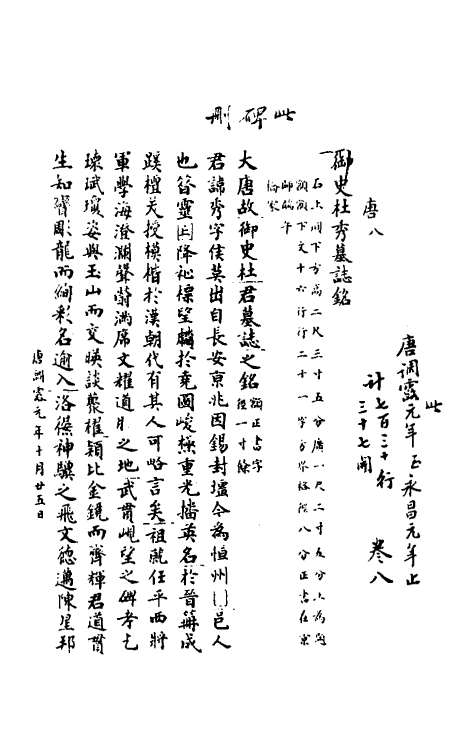 此碑刪
此
唐調露元年 至永昌元年止
計七百三十行
三十七開
卷八
唐八
御史杜秀墓誌銘
石上圓下方高二尺三寸五分廣一尺二寸五分上為圓
額額下文十六行行二十一字方界格徑八分正書在京
大唐故御史杜君墓誌之銘 額正書字徑一寸餘
君諱秀字俟莫出自長安京兆因錫封壃今為恒州邑人
也昔靈降祉標望麟於堯圖峻極重光播英名於晉冊成
蹊檀美授模楷於漢朝代有其人可略言矣祖就任平西將
軍學海澄瀾聲蔚滿席文耀道之地武貫峴望之碑考乞
竦斌瓊姿與玉山而交暎談藂櫂穎比金鏡而齊輝君道貫
生知鬱彫龍而絢彩名逾入洛儑神驥之飛文德邁陳星邦
唐調露元年十月廿五日